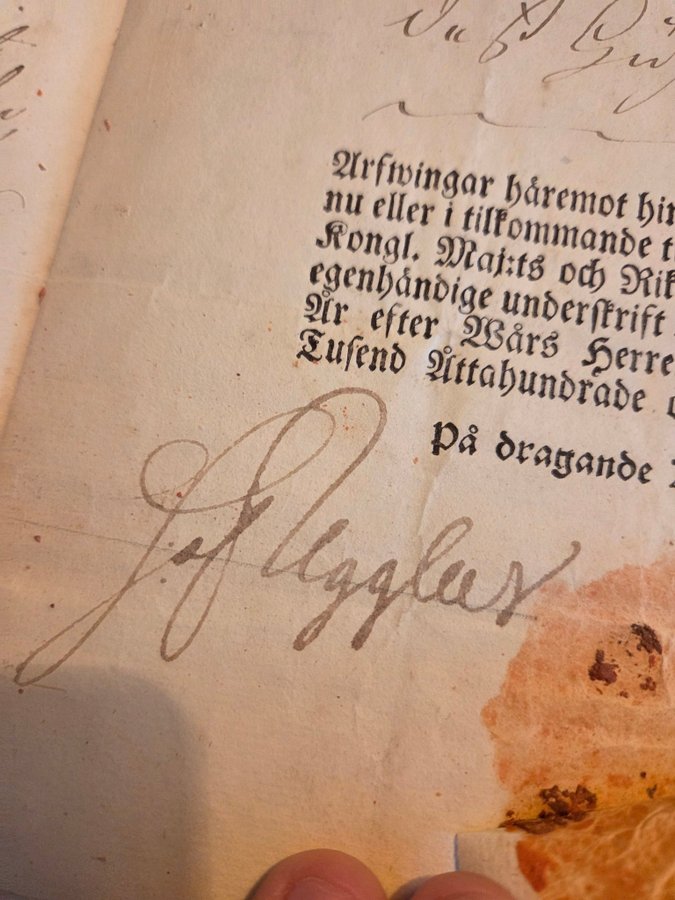 Arfwingar häremot hin
nu eller i tilkommande t
Kongl. Maj:ts och Rik
egenhändige underskrift
År efter Wårs Herre
Tusend Åttahundrade o
På dragande
af Ugglas